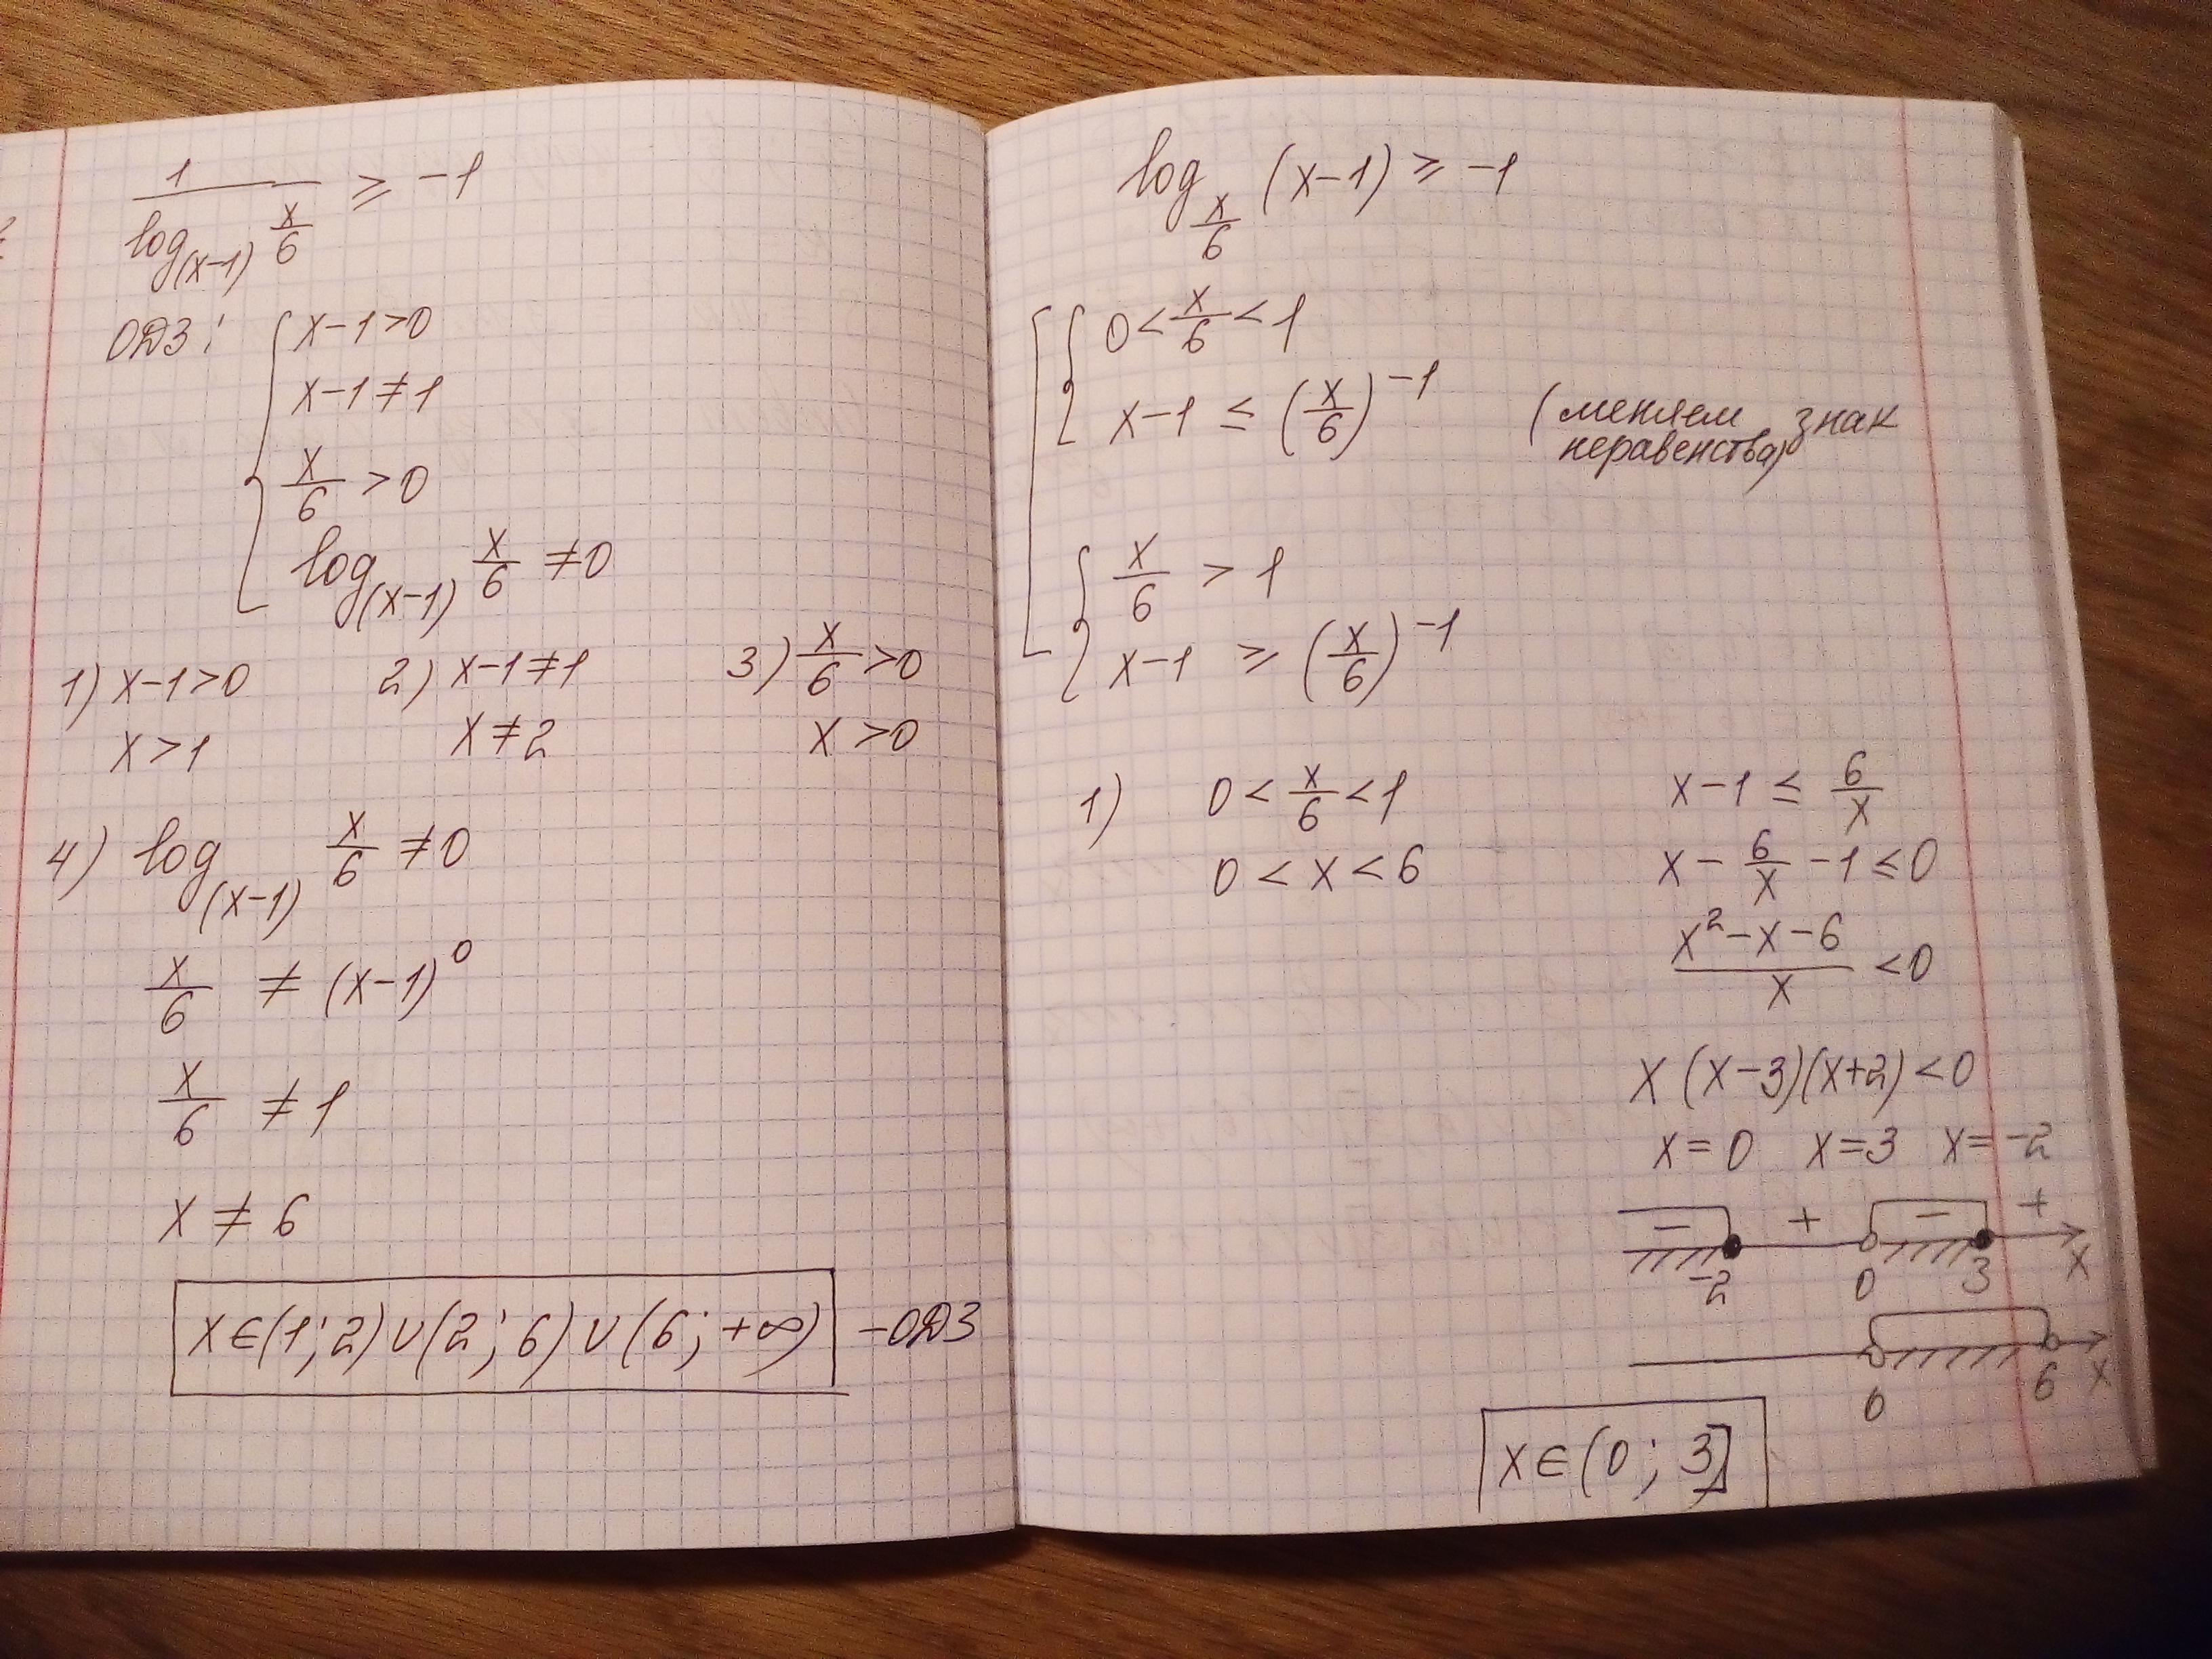 1 / log_(x-1) x/6 ≥ -1
ОДЗ: { x-1>0
x-1≠1
x/6 >0
log_(x-1) x/6 ≠0
1) x-1>0 2) x-1≠1 3) x/6 >0
x>1 x≠2 x>0
4) log_(x-1) x/6 ≠0
x/6 ≠ (x-1)^0
x/6 ≠1
x ≠ 6
x∈(1;2)∪(2;6)∪(6;+∞) -ОДЗ
log_x/6 (x-1) ≥ -1
[ { 0< x/6 <1
x-1 ≤ (x/6)^-1 (меняем знак
неравенства)
{ x/6 > 1
x-1 ≥ (x/6)^-1
1) 0< x/6 <1 x-1 ≤ 6/x
0<x<6 x - 6/x -1 ≤0
(x²-x-6)/x <0
x(x-3)(x+2)<0
x=0 x=3 x=-2
- + - +
-2 0 3 x
0 6 x
x∈(0;3]